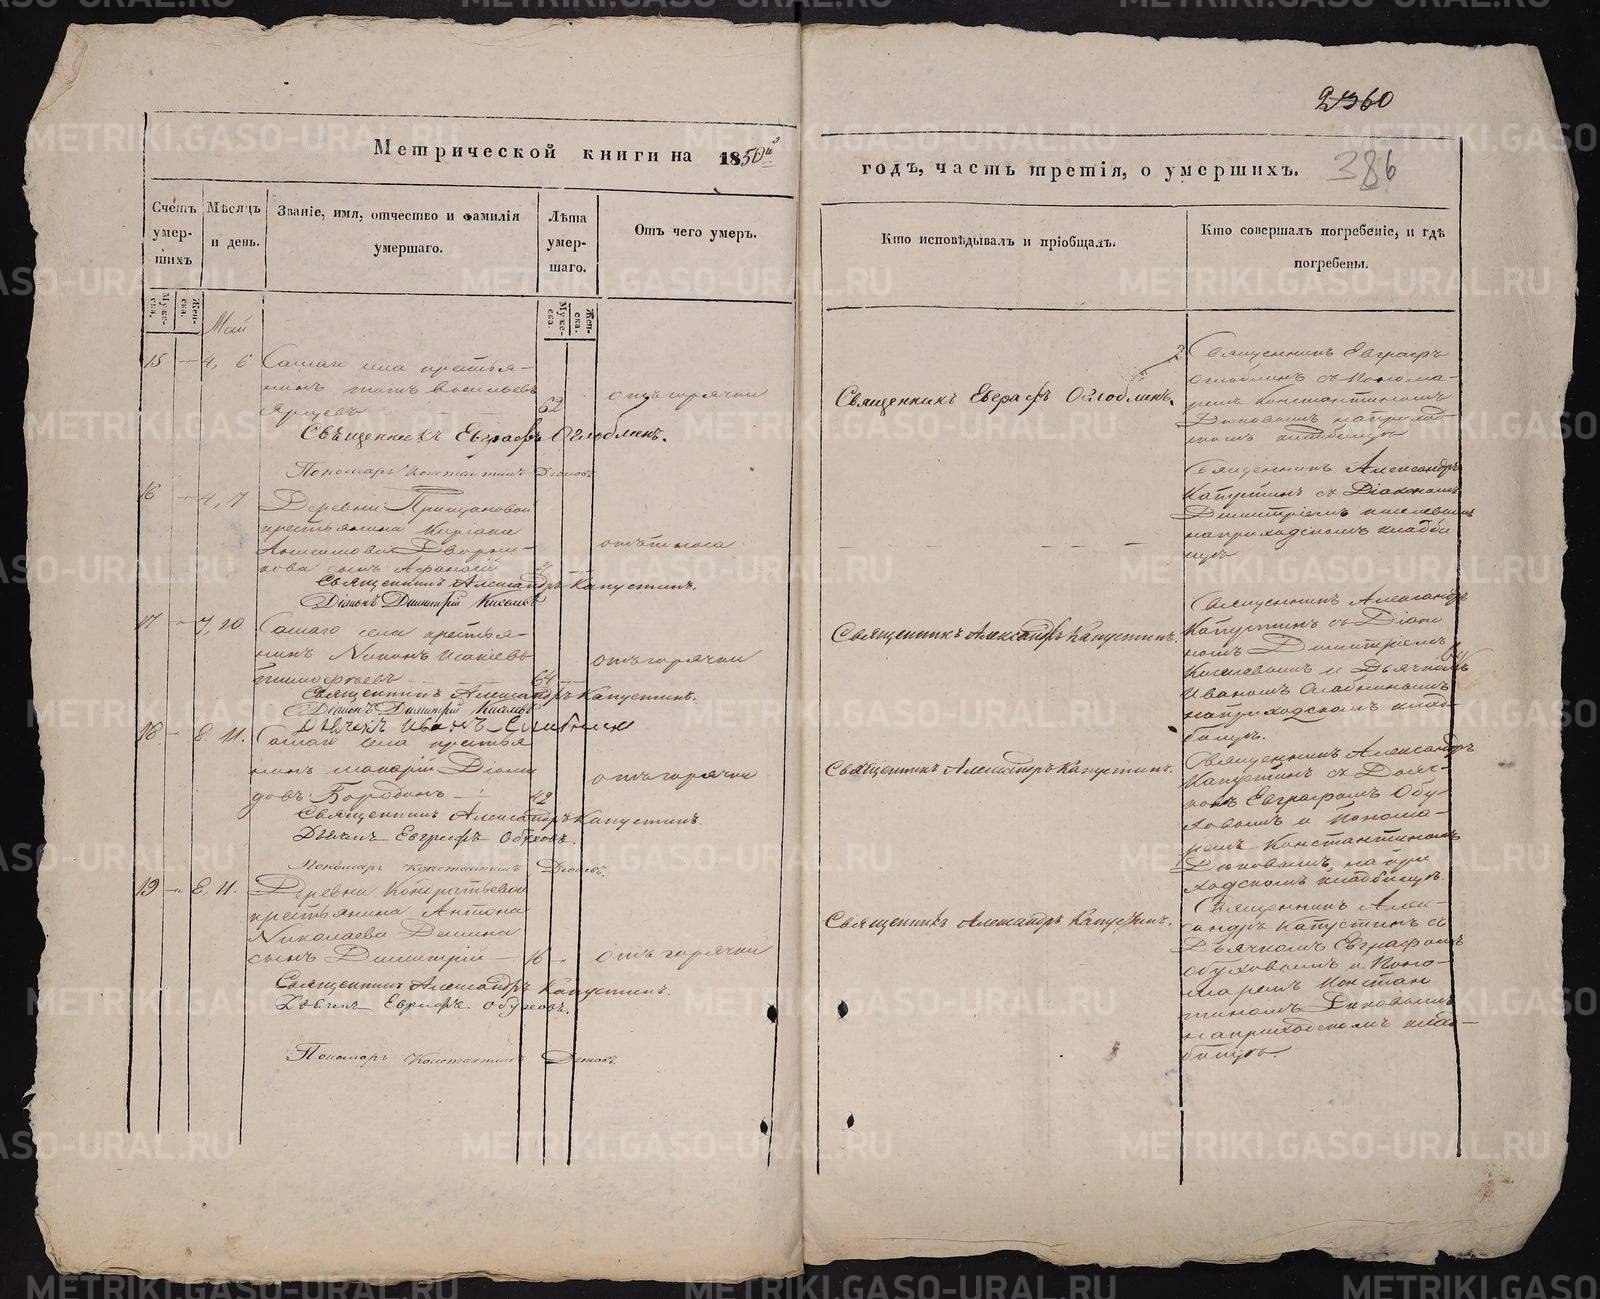 2360
386
Метрической книги на 1850й
годъ, часть третія, о умершихъ.
Счетъ умер-шихъ
Мѣсяцъ и день.
Званіе, имя, отчество и фамилія умершаго.
Лѣта умер-шаго.
Отъ чего умеръ.
Кто исповѣдывалъ и пріобщалъ.
Кто совершалъ погребеніе, и гдѣ погребены.
Муже-ска.
Жен-ска.
Муже-ска.
Жен-ска.
Май
15 — 4, 6 Самаго села крестья-
нинъ Титъ Васильевъ
62 отъ горячки
Священникъ Евграфъ Оглоблинъ.
Пономарь Константинъ
Священникъ Евграфъ Оглоблинъ.
Священникъ Евграфъ
Оглоблинъ съ Понома-
ремъ Константиномъ
на приход-
скомъ кладбищѣ
16 — 4, 7 Деревни
крестьянина Киріака
Анисимова Дворни-
кова сынъ Афанасій
отъ поноса
Священникъ Александръ Капустинъ.
Діаконъ Димитрій Киселевъ
Священникъ Александръ
Капустинъ съ Діакономъ
Димитріемъ Киселевымъ
на приходскомъ кладби
щѣ
17 — 7, 10 Самаго села крестья-
нинъ Никонъ Исаковъ
Тимофеевъ 64 отъ горячки
Священникъ Александръ Капустинъ.
Діаконъ Димитрій Киселевъ
Дьячекъ Иванъ
Священникъ Александръ Капустинъ.
Священникъ Александръ
Капустинъ съ Діако
номъ Димитріемъ
Киселевымъ и Дьячкомъ
Иваномъ
на приходскомъ клад-
бищѣ.
18 — 8, 11. Самаго села крестья
нинъ Макарій Діоми
довъ Бородинъ 42 отъ горячки
Священникъ Александръ Капустинъ.
Дьячекъ Евграфъ Обуховъ.
Пономарь Константинъ
Священникъ Александръ Капустинъ.
Священникъ Александръ
Капустинъ съ Дьяч-
комъ Евграфомъ Обу
ховымъ и Понома-
ремъ Константиномъ
на при
ходскомъ кладбищѣ.
19 — 8, 11. Деревни Кондратьевой
крестьянина Антона
Николаева Демина
сынъ Димитрій — 16 отъ горячки
Священникъ Александръ Капустинъ.
Дьячекъ Евграфъ Обуховъ.
Пономарь Константинъ
Священникъ Александръ Капустинъ.
Священникъ Алек-
сандръ Капустинъ съ
Дьячкомъ Евграфомъ
Обуховымъ и Поно-
маремъ Констан
тиномъ
на приходскомъ клад-
бищѣ.
METRIKI.GASO-URAL.RU